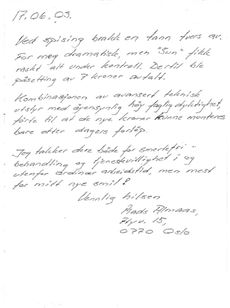 17.06.03.
Ved spising brakk en tann tvers av.
For meg dramatisk, men "Sun" fikk
raskt alt under kontroll. Dertil ble
påsetting av 7 kroner avtalt.
Kombinasjonen av avansert teknisk
utstyr med øyensynlig høy faglig dyktighet,
førte til at de nye kroner kunne monteres
bare etter dagers forløp.
Jeg takker dere både for smertefri-
behandling og tjenestevillighet i og
utenfor ordinær arbeidstid, men mest
for mitt nye smil!
Vennlig hilsen
15,
0770 Oslo